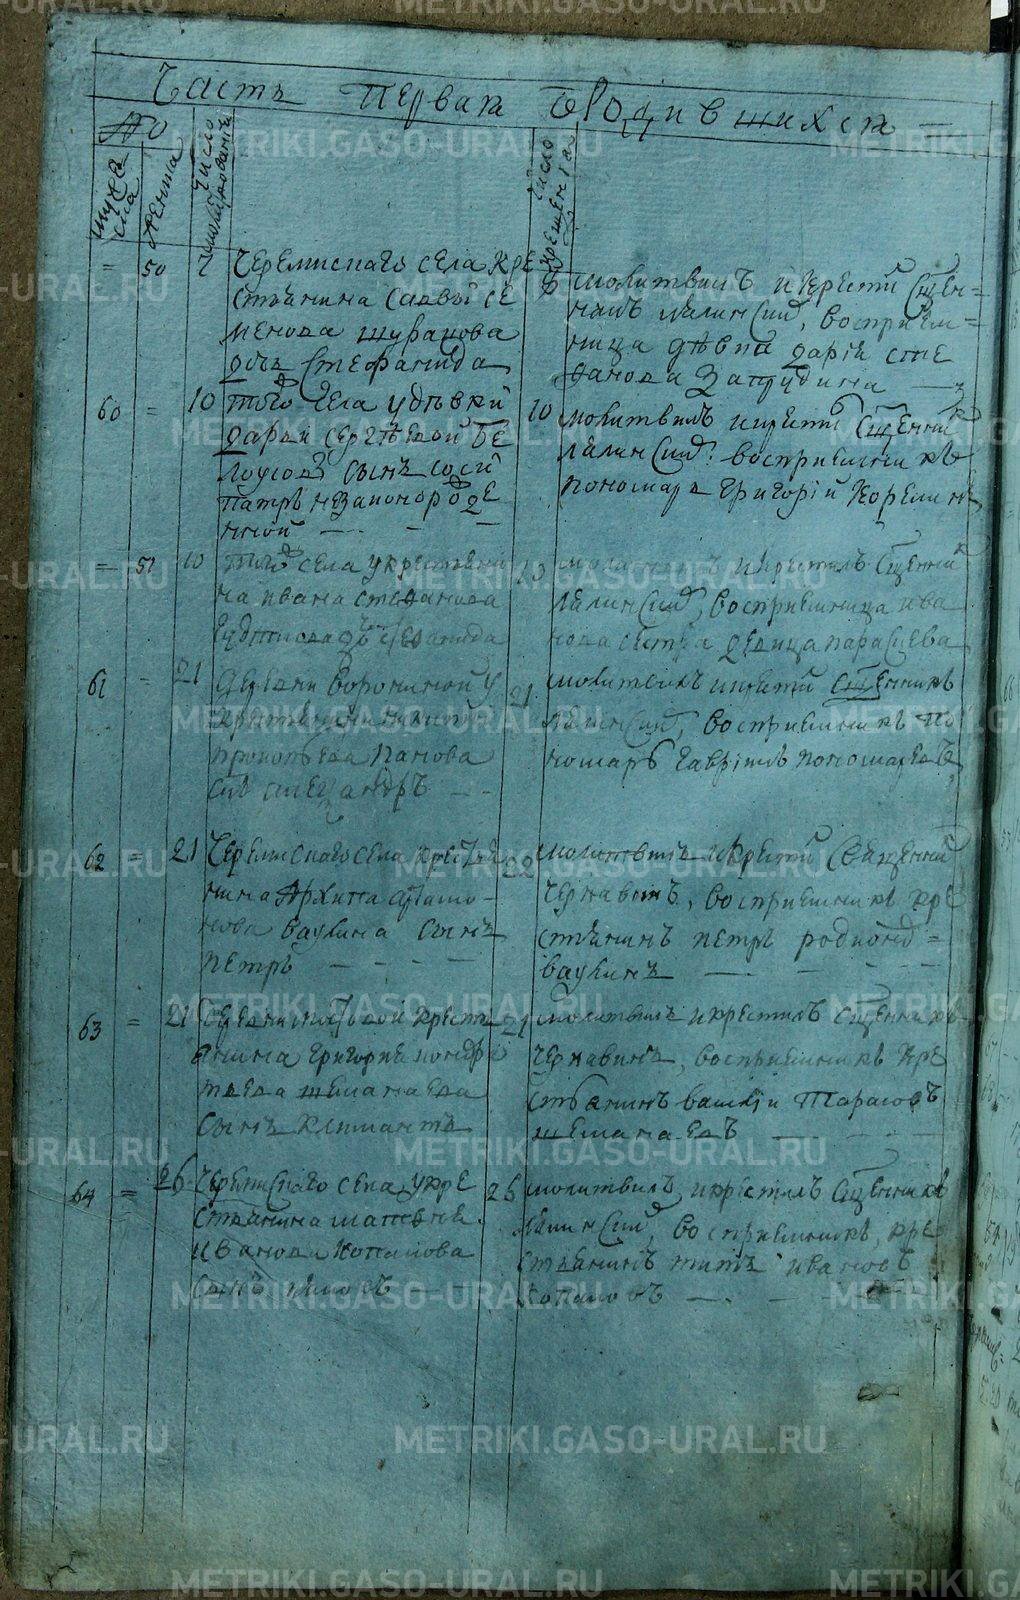 Часть Первая О Родившихся
№
мужеска
женска
число молитвования
число крещения
= 50 7 Черемиского села кре
стьянина Саввы Се
менова
дочь Стефанида
молитвилъ и крестил Сщен=
никъ Лялинский, восприем=
ница девка Дарья Сте
фанова Запрудина
60 = 10 того села у девки
Дарьи Сергеевой Бе
лоусовой сынъ Соси
патръ незаконорожде
нной
10 молитвилъ и крестил Сщенник
Лялинский. восприемникъ
пономарь Григорий Корелин
= 51 10 того села у крестьяни
на Ивана Степанова
10 молитвилъ и крестилъ Сщенник
Лялинский, восприемница Ива
нова сестра девица Параскева
61 = 21 деревни Ворониной у
крестьянина
Прокопьева Панова
сынъ Александръ
21 молитвилъ и крестил Сщенникъ
Лялинский, восприемникъ По
номарь Гаврилъ Пономаревъ
62 = 21 Черемиского села крестья
нина Архипа Артамо-
нова Ваулина сынъ
Петръ
22 молитвилъ и крестил Священник
Чернавинъ, восприемникъ кре
стьянинъ Петръ Родионов=
Ваулинъ
63 = 21 крестъ
янина Григорья Кондра
тьева Шеманаева
сынъ Климантъ
21 молитвилъ и крестилъ Сщенникъ
Чернавинъ, восприемникъ кре
стьянинъ Тарасовъ
Шеманаевъ
64 = 26 Черемиского села у кре
стьянина Матвея
Иванова Копалова
сынъ
26 молитвилъ и крестилъ Сщенникъ
Лялинский, восприемникъ, кре
стьянинъ Титъ Ивановъ
Копаловъ
METRIKI.GASO-URAL.RU